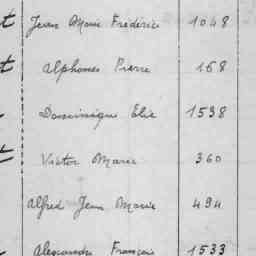 t Jean Marie Frédéric 1048
t Alphonse Pierre 168
Dominique Elie 1538
Victor Marie 360
Alfred Jean Marie 494
Alexandre François 1533